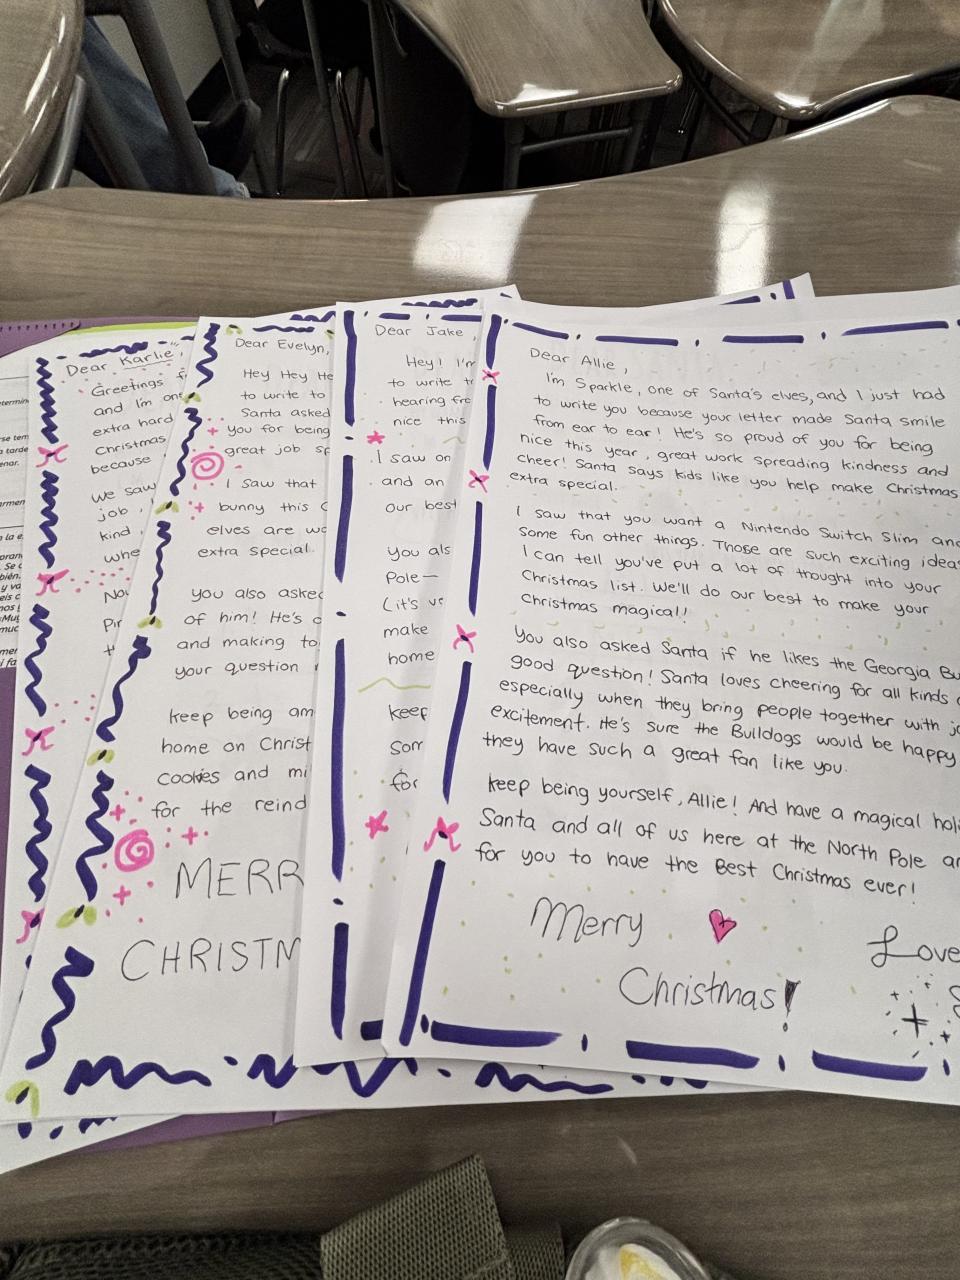 Dear Karlie,
Greetings f
and I'm one
extra hard
Christmas
because
We saw
job,
kind
whe
Dear Evelyn,
Hey Hey He
to write to
Santa asked
you for being
great job sp
I saw that
bunny this C
elves are wo
extra special.
you also asked
of him! He's
and making to
your question
keep being am
home on Christ
cookies and mi
for the reind
MERR
CHRISTM
Dear Jake,
Hey! I'm
to write t
hearing fro
nice this
I saw on
and an
our best
you als
Pole—
(it's ve
make
home
keep
for
Dear Allie,
I'm Sparkle, one of Santa's elves, and I just had
to write you because your letter made Santa smile
from ear to ear! He's so proud of you for being
nice this year, great work spreading kindness and
cheer! Santa says kids like you help make Christmas
extra special.
I saw that you want a Nintendo Switch Slim and
some fun other things. Those are such exciting ideas
I can tell you've put a lot of thought into your
Christmas list. We'll do our best to make your
Christmas magical!!
You also asked Santa if he likes the Georgia Bu
good question! Santa loves cheering for all kinds
especially when they bring people together with jo
excitement. He's sure the Bulldogs would be happy
they have such a great fan like you.
keep being yourself, Allie! And have a magical holi
Santa and all of us here at the North Pole ar
for you to have the Best Christmas ever!
Merry
Christmas!
Love